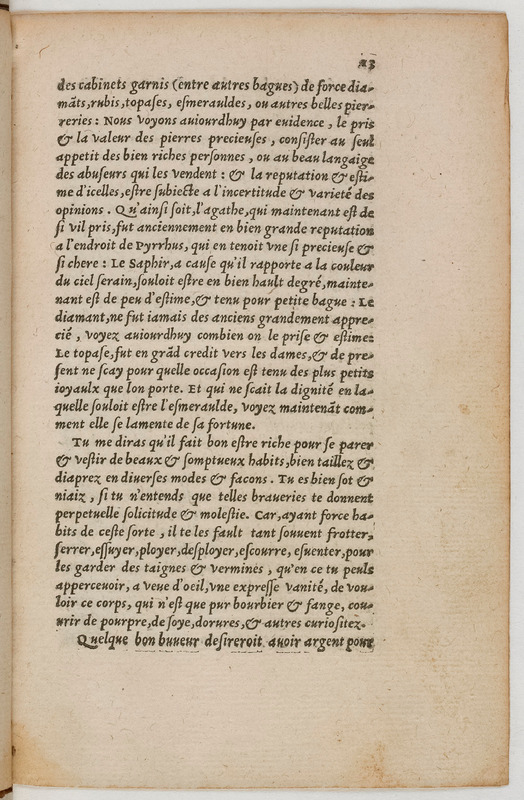 23
des cabinets garnis (entre autres bagues) de force dia-
mãts, rubis, topases, esmerauldes, ou autres belles pier-
reries: Nous voyons auiourdhuy par euidence, le pris
& la valeur des pierres precieuses, consister au seul
appetit des bien riches personnes, ou au beau langaige
des abuseurs qui les vendent: & la reputation & esti-
me d'icelles, estre subiecte a l'incertitude & varieté des
opinions. Qu'ainsi soit, l'agathe, qui maintenant est de
si vil pris, fut anciennement en bien grande reputation
a l'endroit de Pyrrhus, qui en tenoit vne si precieuse &
si chere: Le Saphir, a cause qu'il rapporte a la couleur
du ciel serain, souloit estre en bien hault degré, mainte-
nant est de peu d'estime, & tenu pour petite bague: Le
diamant, ne fut iamais des anciens grandement appre-
cié, voyez auiourdhuy combien on le prise & estime:
Le topase, fut en grãd credit vers les dames, & de pre-
sent ne scay pour quelle occasion est tenu des plus petits
ioyaulx que lon porte. Et qui ne scait la dignité en la-
quelle souloit estre l'esmeraulde, voyez maintenãt com-
ment elle se lamente de sa fortune.
Tu me diras qu'il fait bon estre riche pour se parer
& vestir de beaux & somptueux habits, bien taillez &
diaprez en diuerses modes & facons. Tu es bien sot &
niaiz, si tu n'entends que telles braueries te donnent
perpetuelle solicitude & molestie. Car, ayant force ha-
bits de ceste sorte, il te les fault tant souuent frotter,
serrer, essuyer, ployer, desployer, escourre, esuenter, pour
les garder des taignes & vermines, qu'en ce tu peuls
apperceuoir, a veue d'oeil, vne expresse vanité, de vou-
loir ce corps, qui n'est que pur bourbier & fange, cou-
urir de pourpre, de soye, dorures, & autres curiositez.
Quelque bon buueur desireroit auoir argent pour